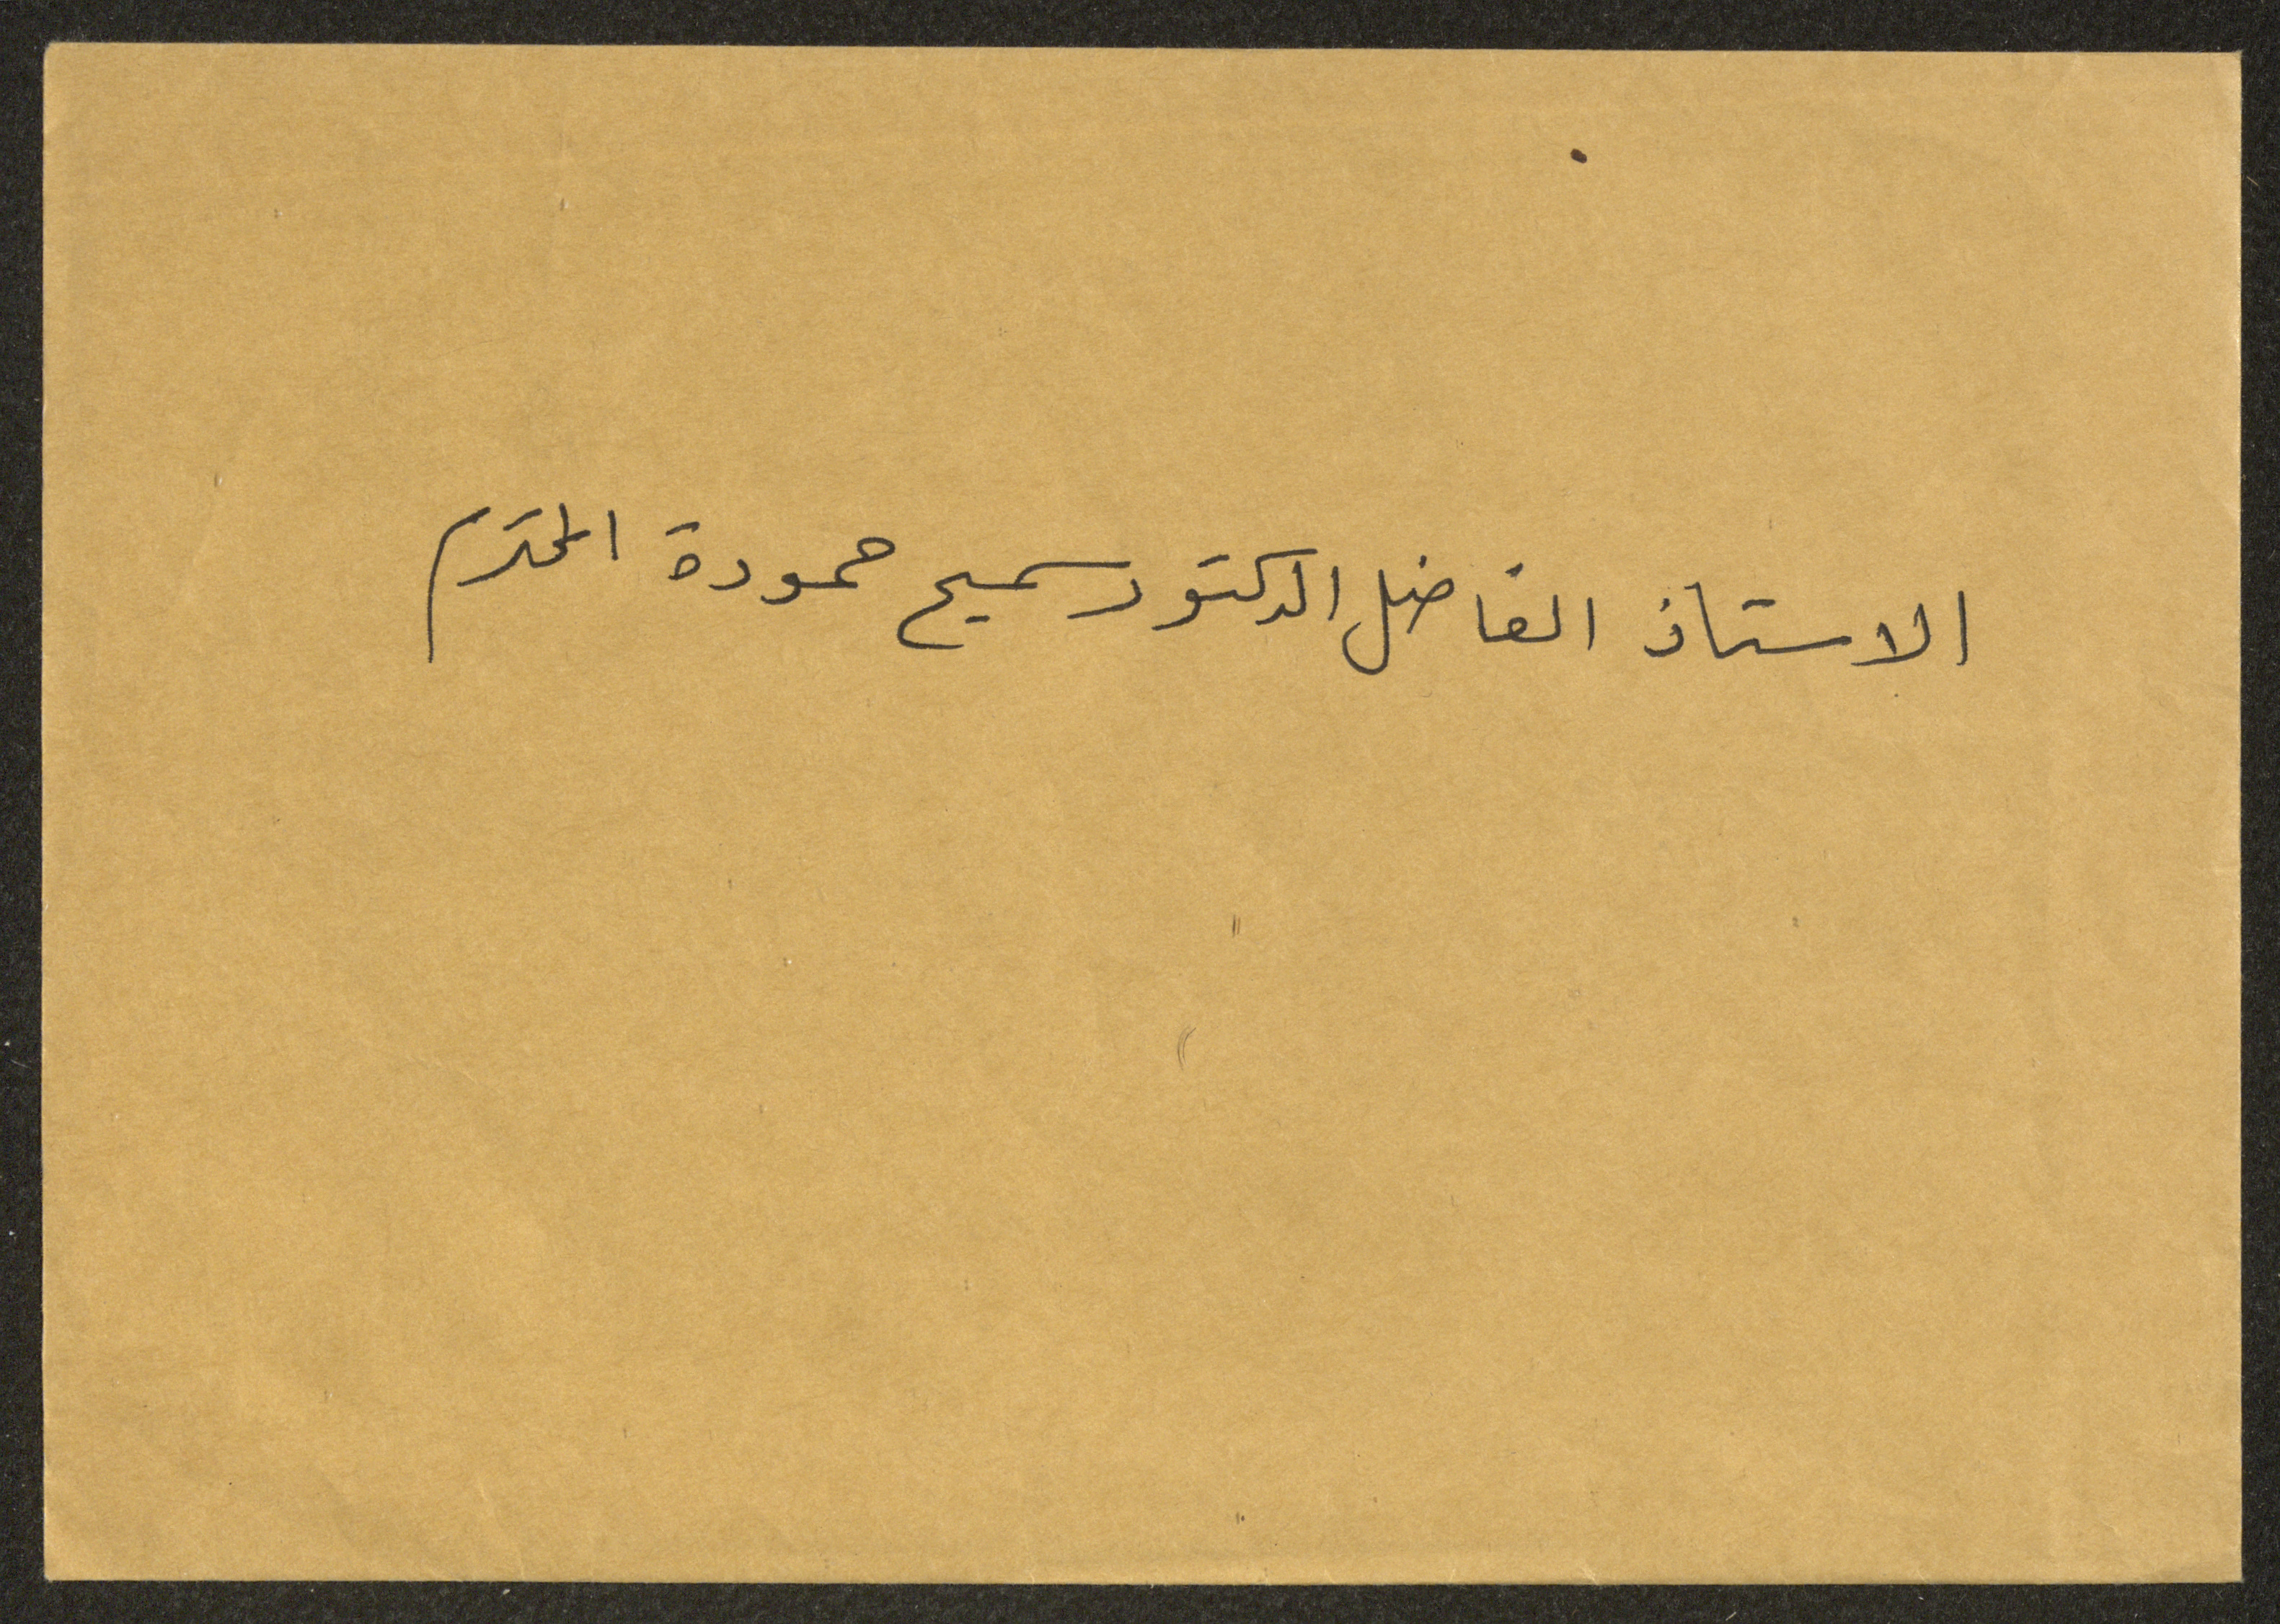 الاستاذ الفاضل الدكتور سميح حمودة المحترم